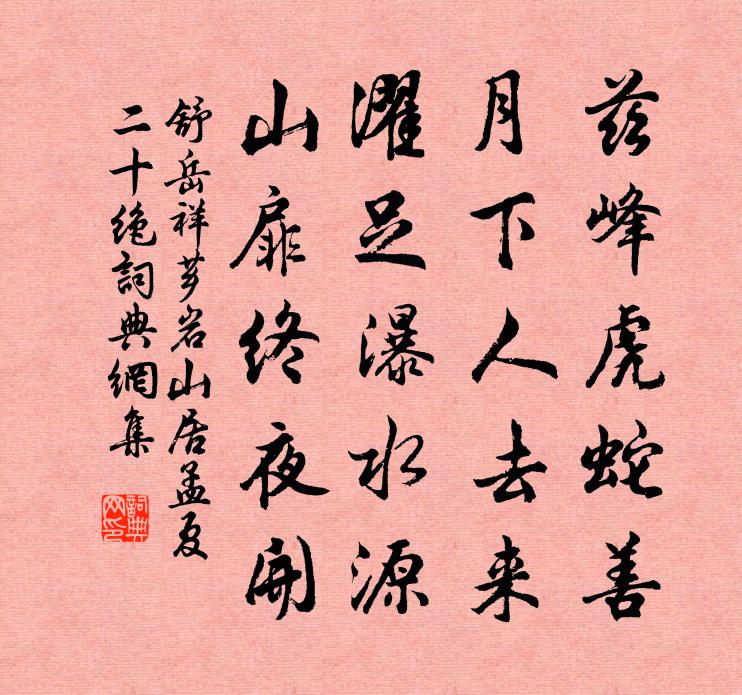 茲峰虎蛇善
月下人去来
濯足瀑水源
山扉終夜開
舒岳祥萝岩山居孟夏
二十绝詞典網集
詞典
网印